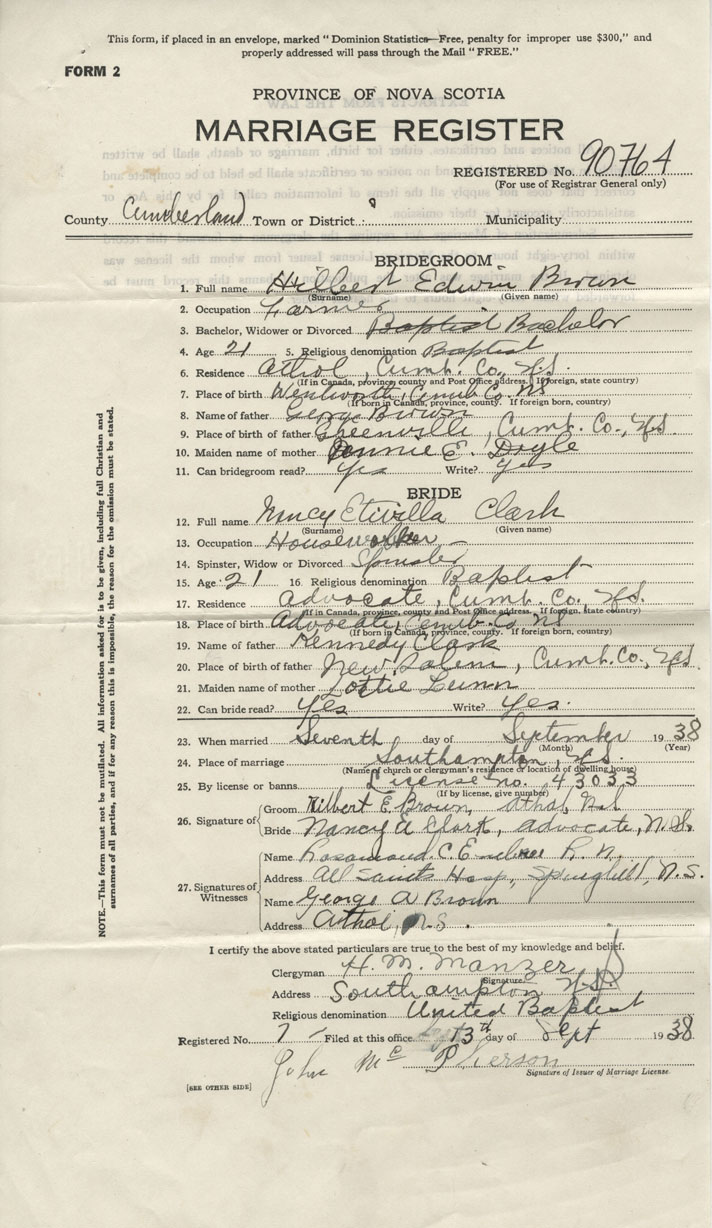 This form, if placed in an envelope, marked "Dominion Statistics—Free, penalty for improper use $300," and
properly addressed will pass through the Mail "FREE."
FORM 2
PROVINCE OF NOVA SCOTIA
MARRIAGE REGISTER
REGISTERED No. 90764
(For use of Registrar General only)
County Cumberland Town or District Municipality
BRIDEGROOM
1. Full name Hilbert Edwin Brown
(Surname) (Given name)
2. Occupation Farmer
3. Bachelor, Widower or Divorced Baptist Bachelor
4. Age 21 5. Religious denomination Baptist
6. Residence Athol, Cumb. Co., N.S.
(If in Canada, province, county and Post Office address. If foreign, state country)
7. Place of birth Wentworth, Cumb Co. NS
(If born in Canada, province, county. If foreign born, country)
8. Name of father George Brown
9. Place of birth of father Greenville, Cumb. Co., N.S.
10. Maiden name of mother Annie E. Doyle
11. Can bridegroom read? Yes Write? Yes
BRIDE
12. Full name Nancy Clark
(Surname) (Given name)
13. Occupation Houseworker
14. Spinster, Widow or Divorced Spinster
15. Age 21 16. Religious denomination Baptist
17. Residence Advocate, Cumb. Co. N.S.
(If in Canada, province, county and Post Office address. If foreign, state country)
18. Place of birth Advocate, Cumb. Co NS
(If born in Canada, province, county. If foreign born, country)
19. Name of father Kennedy Clark
20. Place of birth of father New Salem, Cumb. Co., N.S.
21. Maiden name of mother Lottie Lunn
22. Can bride read? Yes Write? Yes.
23. When married Seventh day of September 1938
(Month) (Year)
24. Place of marriage Southampton, N.S.
(Name of church or clergyman's residence or location of dwelling house)
25. By license or banns License no. 43033
(If by license, give number)
26. Signature of Groom Hilbert E Brown, Athol,
Bride Nancy A Clark, Advocate, N.S.
27. Signatures of Witnesses
Name C. R. N.
Address All Saints Hosp, Springhill, N.S.
Name George A Brown
Address Athol, N.S.
I certify the above stated particulars are true to the best of my knowledge and belief.
Clergyman H. M. Manzer
Signature.
Address Southampton N.S.
Religious denomination United Baptist
Registered No. 7 Filed at this office 13th day of Sept 1938
John McPherson
Signature of Issuer of Marriage License
[SEE OTHER SIDE]
NOTE.—This form must not be mutilated. All information asked for is to be given, including full Christian and
surnames of all parties, and if for any reason this is impossible, the reason for the omission must be stated.